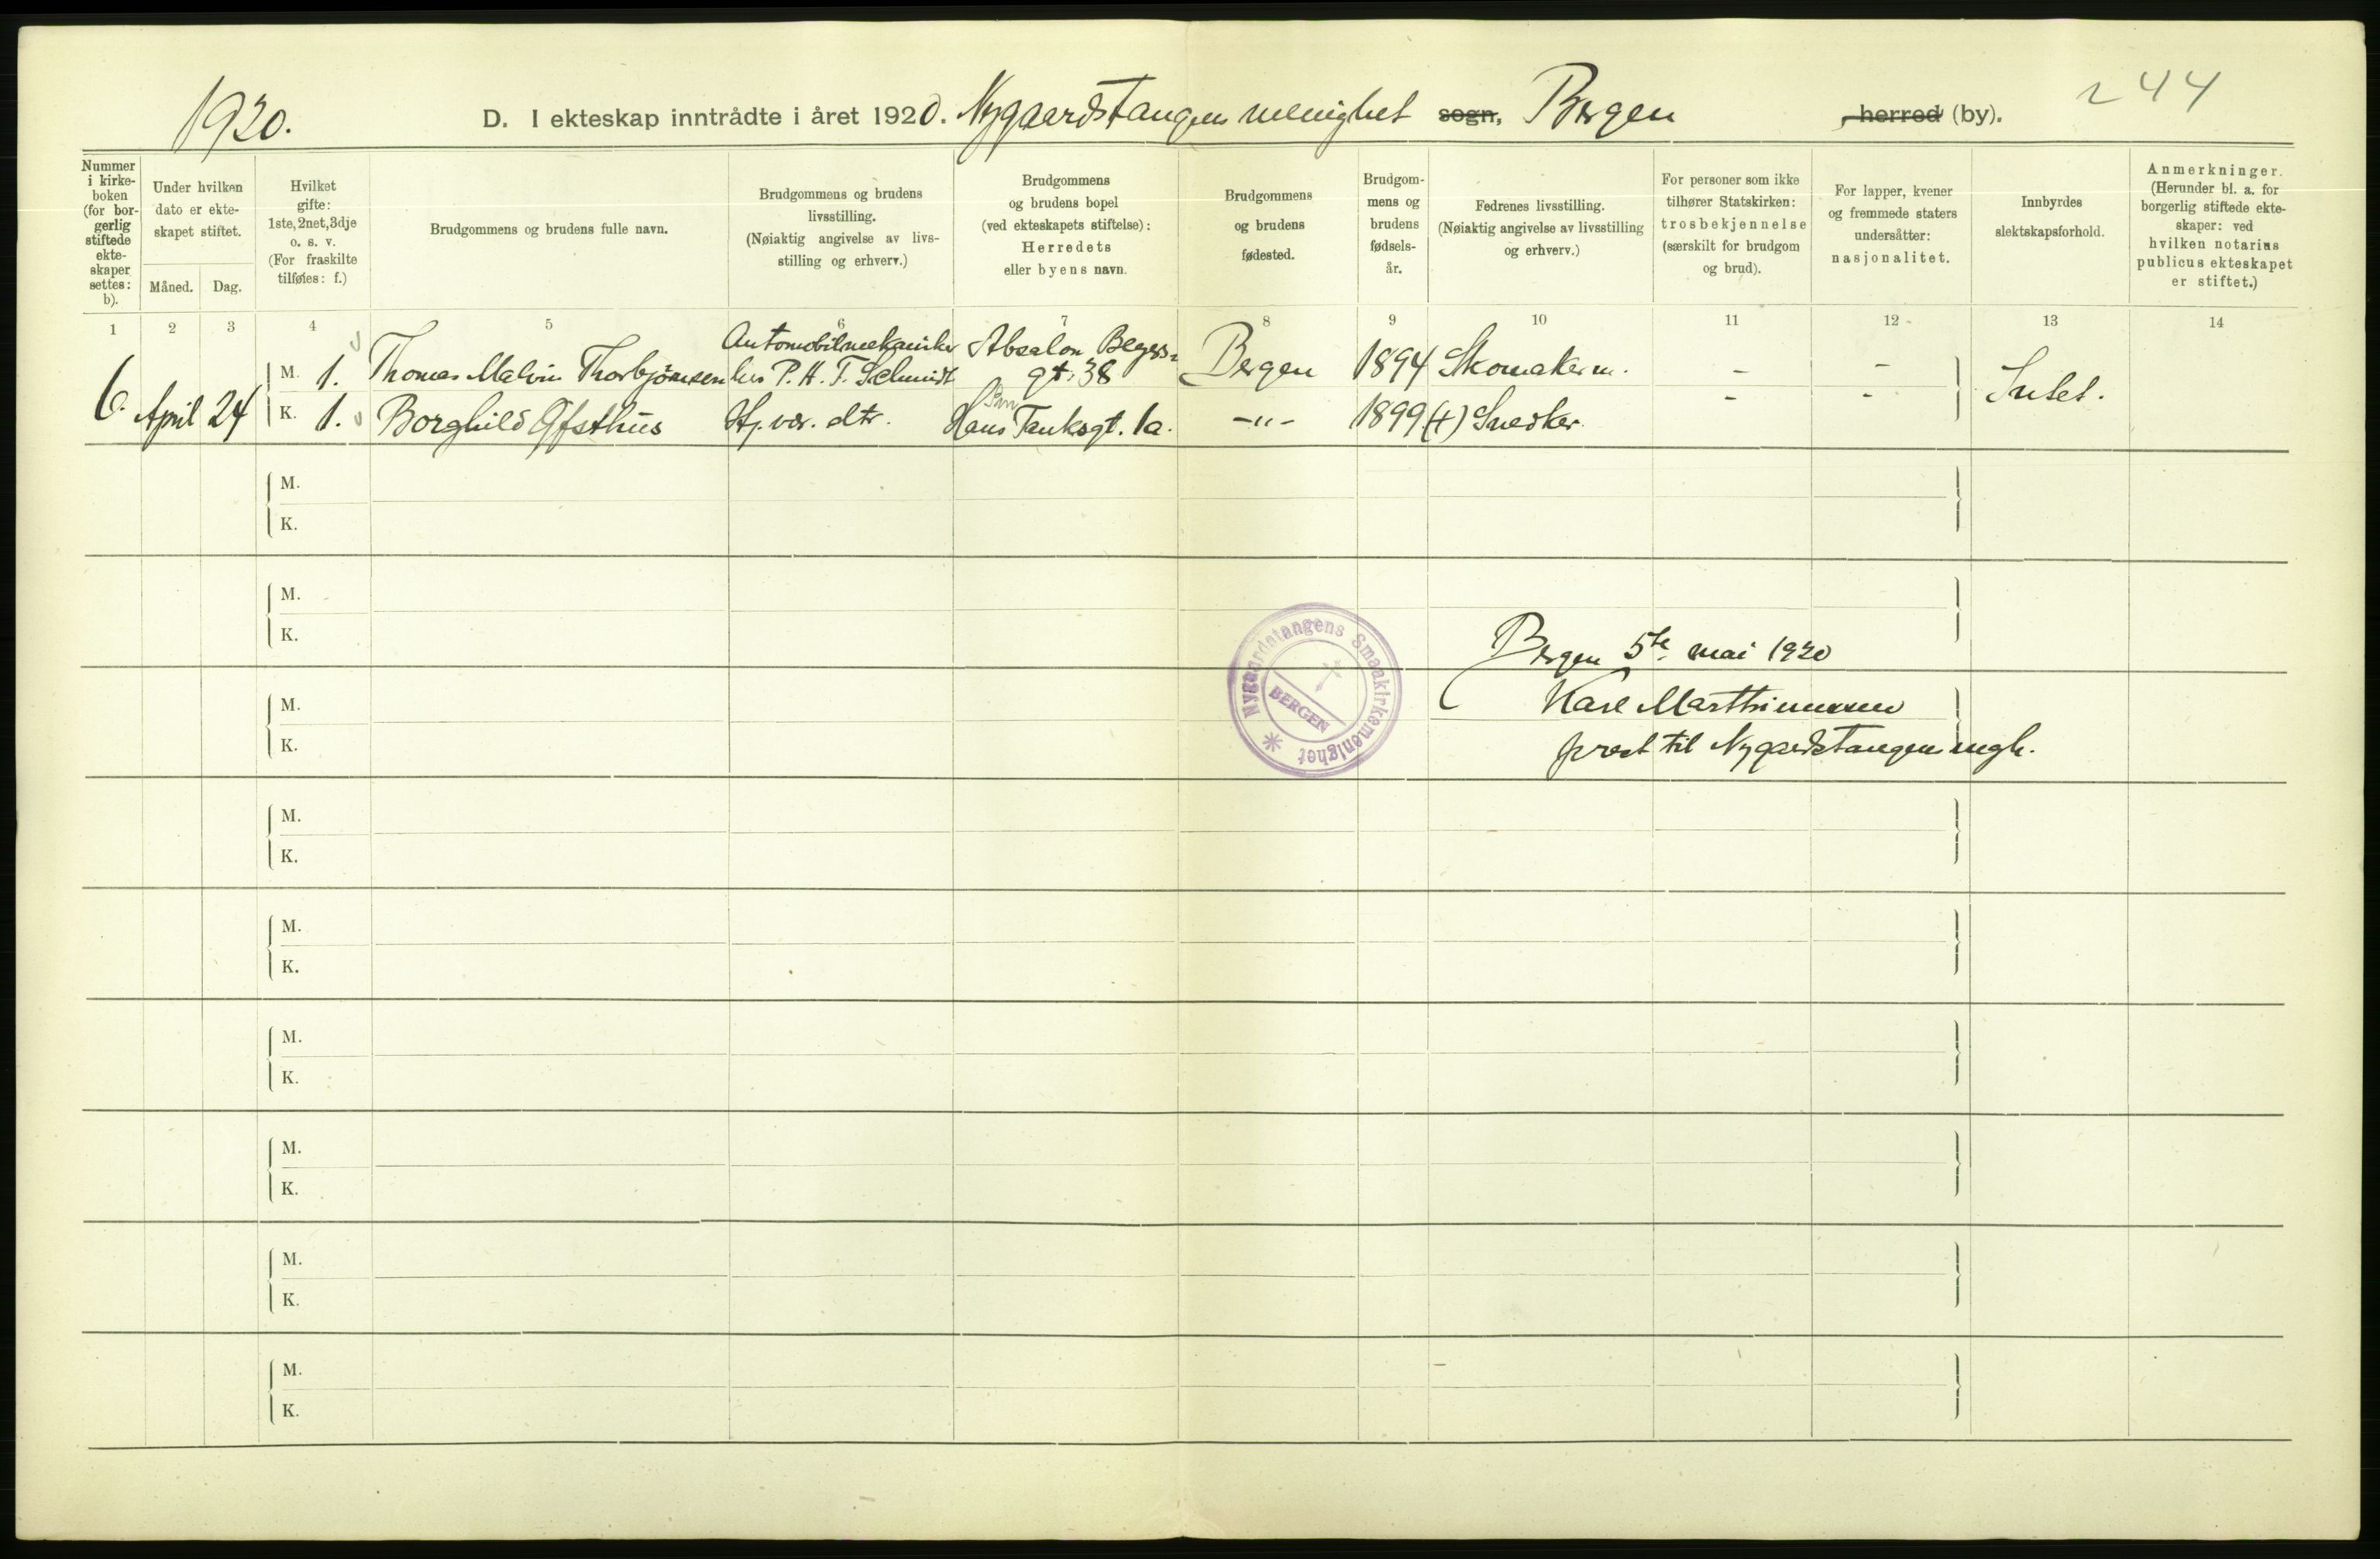 1920.
D. I ekteskap inntrådte i året 1920. Nygaardstangens menighet sogn, Bergen , herred (by).
244
Nummer
i kirke-
boken
(for bor-
gerlig
stiftede
ekte-
skaper
settes:
b).
Under hvilken
dato er ekte-
skapet stiftet.
Måned. Dag.
Hvilket
gifte:
1ste, 2net, 3dje
o. s. v.
(For fraskilte
tilføies: f.)
Brudgommens og brudens fulle navn.
Brudgommens og brudens
livsstilling.
(Nøiaktig angivelse av livs-
stilling og erhverv.)
Brudgommens
og brudens bopel
(ved ekteskapets stiftelse):
Herredets
eller byens navn.
Brudgommens
og brudens
fødested.
Brudgom-
mens og
brudens
fødsels-
år.
Fedrenes livsstilling.
(Nøiaktig angivelse av livsstilling
og erhverv.)
For personer som ikke
tilhører Statskirken:
trosbekjennelse
(særskilt for brudgom
og brud).
For lapper, kvener
og fremmede staters
undersåtter:
nasjonalitet.
Innbyrdes
slektskapsforhold.
Anmerkninger.
(Herunder bl. a. for
borgerlig stiftede ekte-
skaper: ved
hvilken notarius
publicus ekteskapet
er stiftet.)
1 2 3 4 5 6 7 8 9 10 11 12 13 14
Automobilmekaniker Absalon Beyers-
M. 1. Thomas Malvin Thorbjörnsen hos P. H. T. Schmidt gt. 38 Bergen 1894 Skomakerm. - -
6. April 24 K. 1. Borghild Ofsthus Hj. vær. dtr. Hans Tanksgt. 1a. -"- 1899 (+) Snedker. - - Intet.
M.
K.
M.
K.
Bergen 5te mai 1920
M.
Karl Marthinussen
K.
prest til Nygaardstangen mgh.
Nygaardstangens Smaakirkemenighet
BERGEN
M.
K.
M.
K.
M.
K.
M.
K.
M.
K.
M.
K.